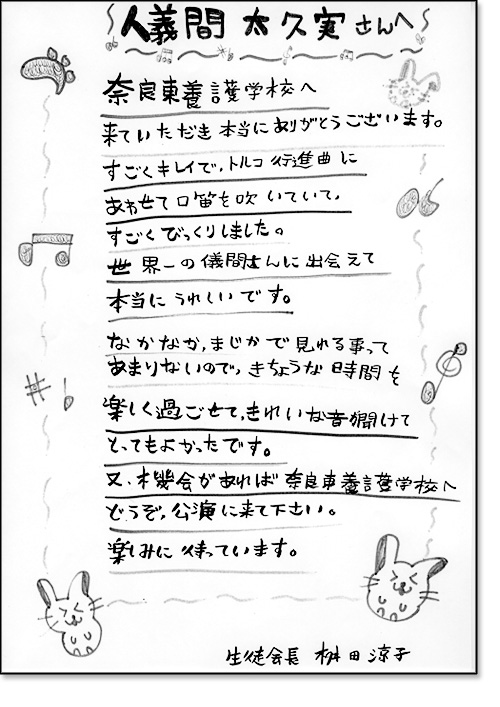 儀間 太久実さんへ
奈良東養護学校へ
来ていただき本当にありがとうございます。
すごくキレイで、トルコ行進曲に
あわせて口笛を吹いていて、
すごくびっくりしました。
世界一の儀間さんに出会えて
本当にうれしいです。
なかなか、まじかで見れる事って
あまりないので、きちょうな時間を
楽しく過ごせて、きれいな音聞けて
とってもよかったです。
又、機会があれば奈良東養護学校へ
どうぞ、公演に来て下さい。
楽しみに待っています。
生徒会長 桝田涼子